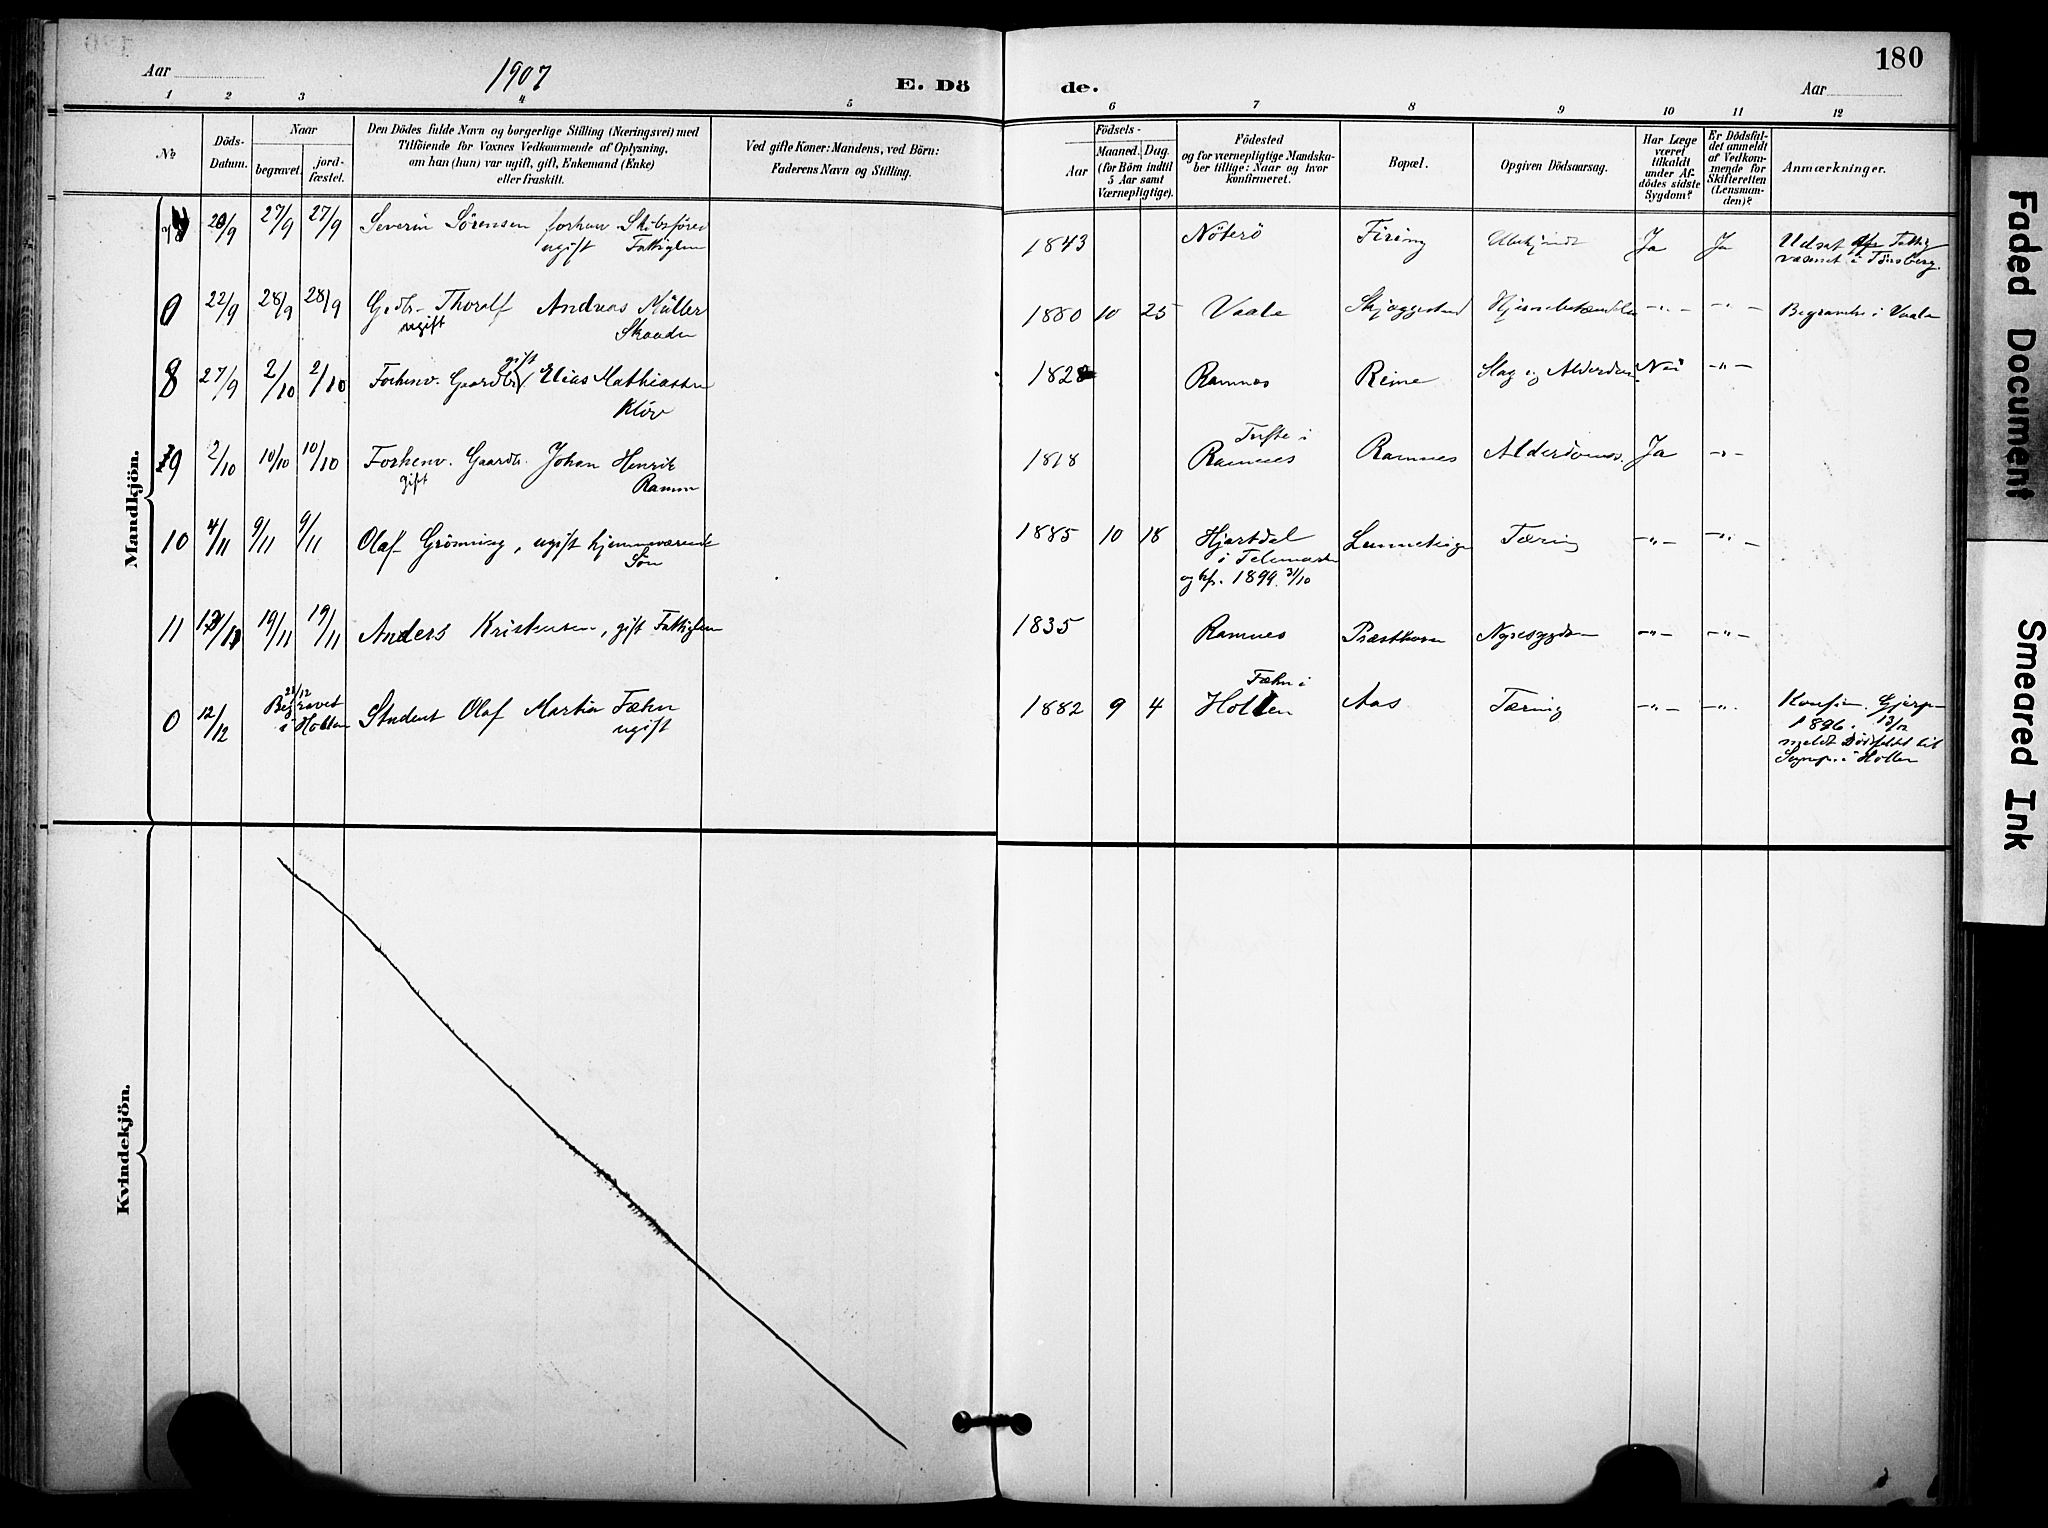 Aar 1907 E. Döde. Aar 180
1 2 3 4 5 6 7 8 9 10 11 12
No
Döds-Datum.
Naar
begravet.
jordfæstet.
Den Dödes fulde Navn og borgerlige Stilling (Næringsvei) med
Tilföiende for Voxnes Vedkommende af Oplysning,
om han (hun) var ugift, gift, Enkemand (Enke)
eller fraskilt.
Ved gifte Koner: Mandens, ved Börn:
Faderens Navn og Stilling.
Födsels-
Aar
Maaned. Dag.
(for Börn indtil
5 Aar samt
Værnepligtige).
Födested
og for værnepligtige Mandskaber tillige: Naar og hvor
konfirmeret.
Bopæl.
Opgiven Dödsaarsag.
Har Læge
været
tilkaldt
under Afdödes sidste
Sygdom?
Er Dödsfaldet anmeldt
af Vedkommende for
Skifteretten
(Lensmanden)?
Anmærkninger.
Mandkjön.
20/9 27/9 27/9 Severin Sörensen forhen Skibsförer
ugift Fattiglem
1843 Nöterö Firing Ubekjendt Ja Ja Udsat Fattig
væsnet i Tönsberg.
0 22/9 28/9 28/9 Gdbr. Thoralf Andreas Müller
ugift Skaaden
1880 10 25 Vaale Skjæggestad -"- -"- Begravet i Vaale
8 27/9 2/10 2/10 Forhenv. Gaardbr. gift Elias Mathiassen
Klöv
1828 Ramnes Reine Slag og Alderdom Nei -"-
9 2/10 10/10 10/10 Forhenv. Gaardb. Johan Henrik
gift Ramm
1818 Tufte i
Ramnes Ramnes Alderdoms. Ja -"-
10 4/11 9/11 9/11 Olaf Grönning, ugift hjemmeværende
Sön
1885 10 18 Hjartdal
i Telemarken
og kf. 1899 31/10 Tæring -"- -"-
11 19/11 19/11 Anders Kristensen, gift Fattiglem
1835 Ramnes Præsthorn Nyresygdom -"- -"-
0 12/12 21/12 Begravet
i Hollen Student Olaf Martin Fæhn
ugift
1882 9 4 Fæhn i
Hollen Aas Tæring -"- -"- Konfirm. Gjerpen
1896. 13/12
meldt Dödsfaldet til
Sognepr. i Hollen
Kvindekjön.
Faded Document
Smeared Ink